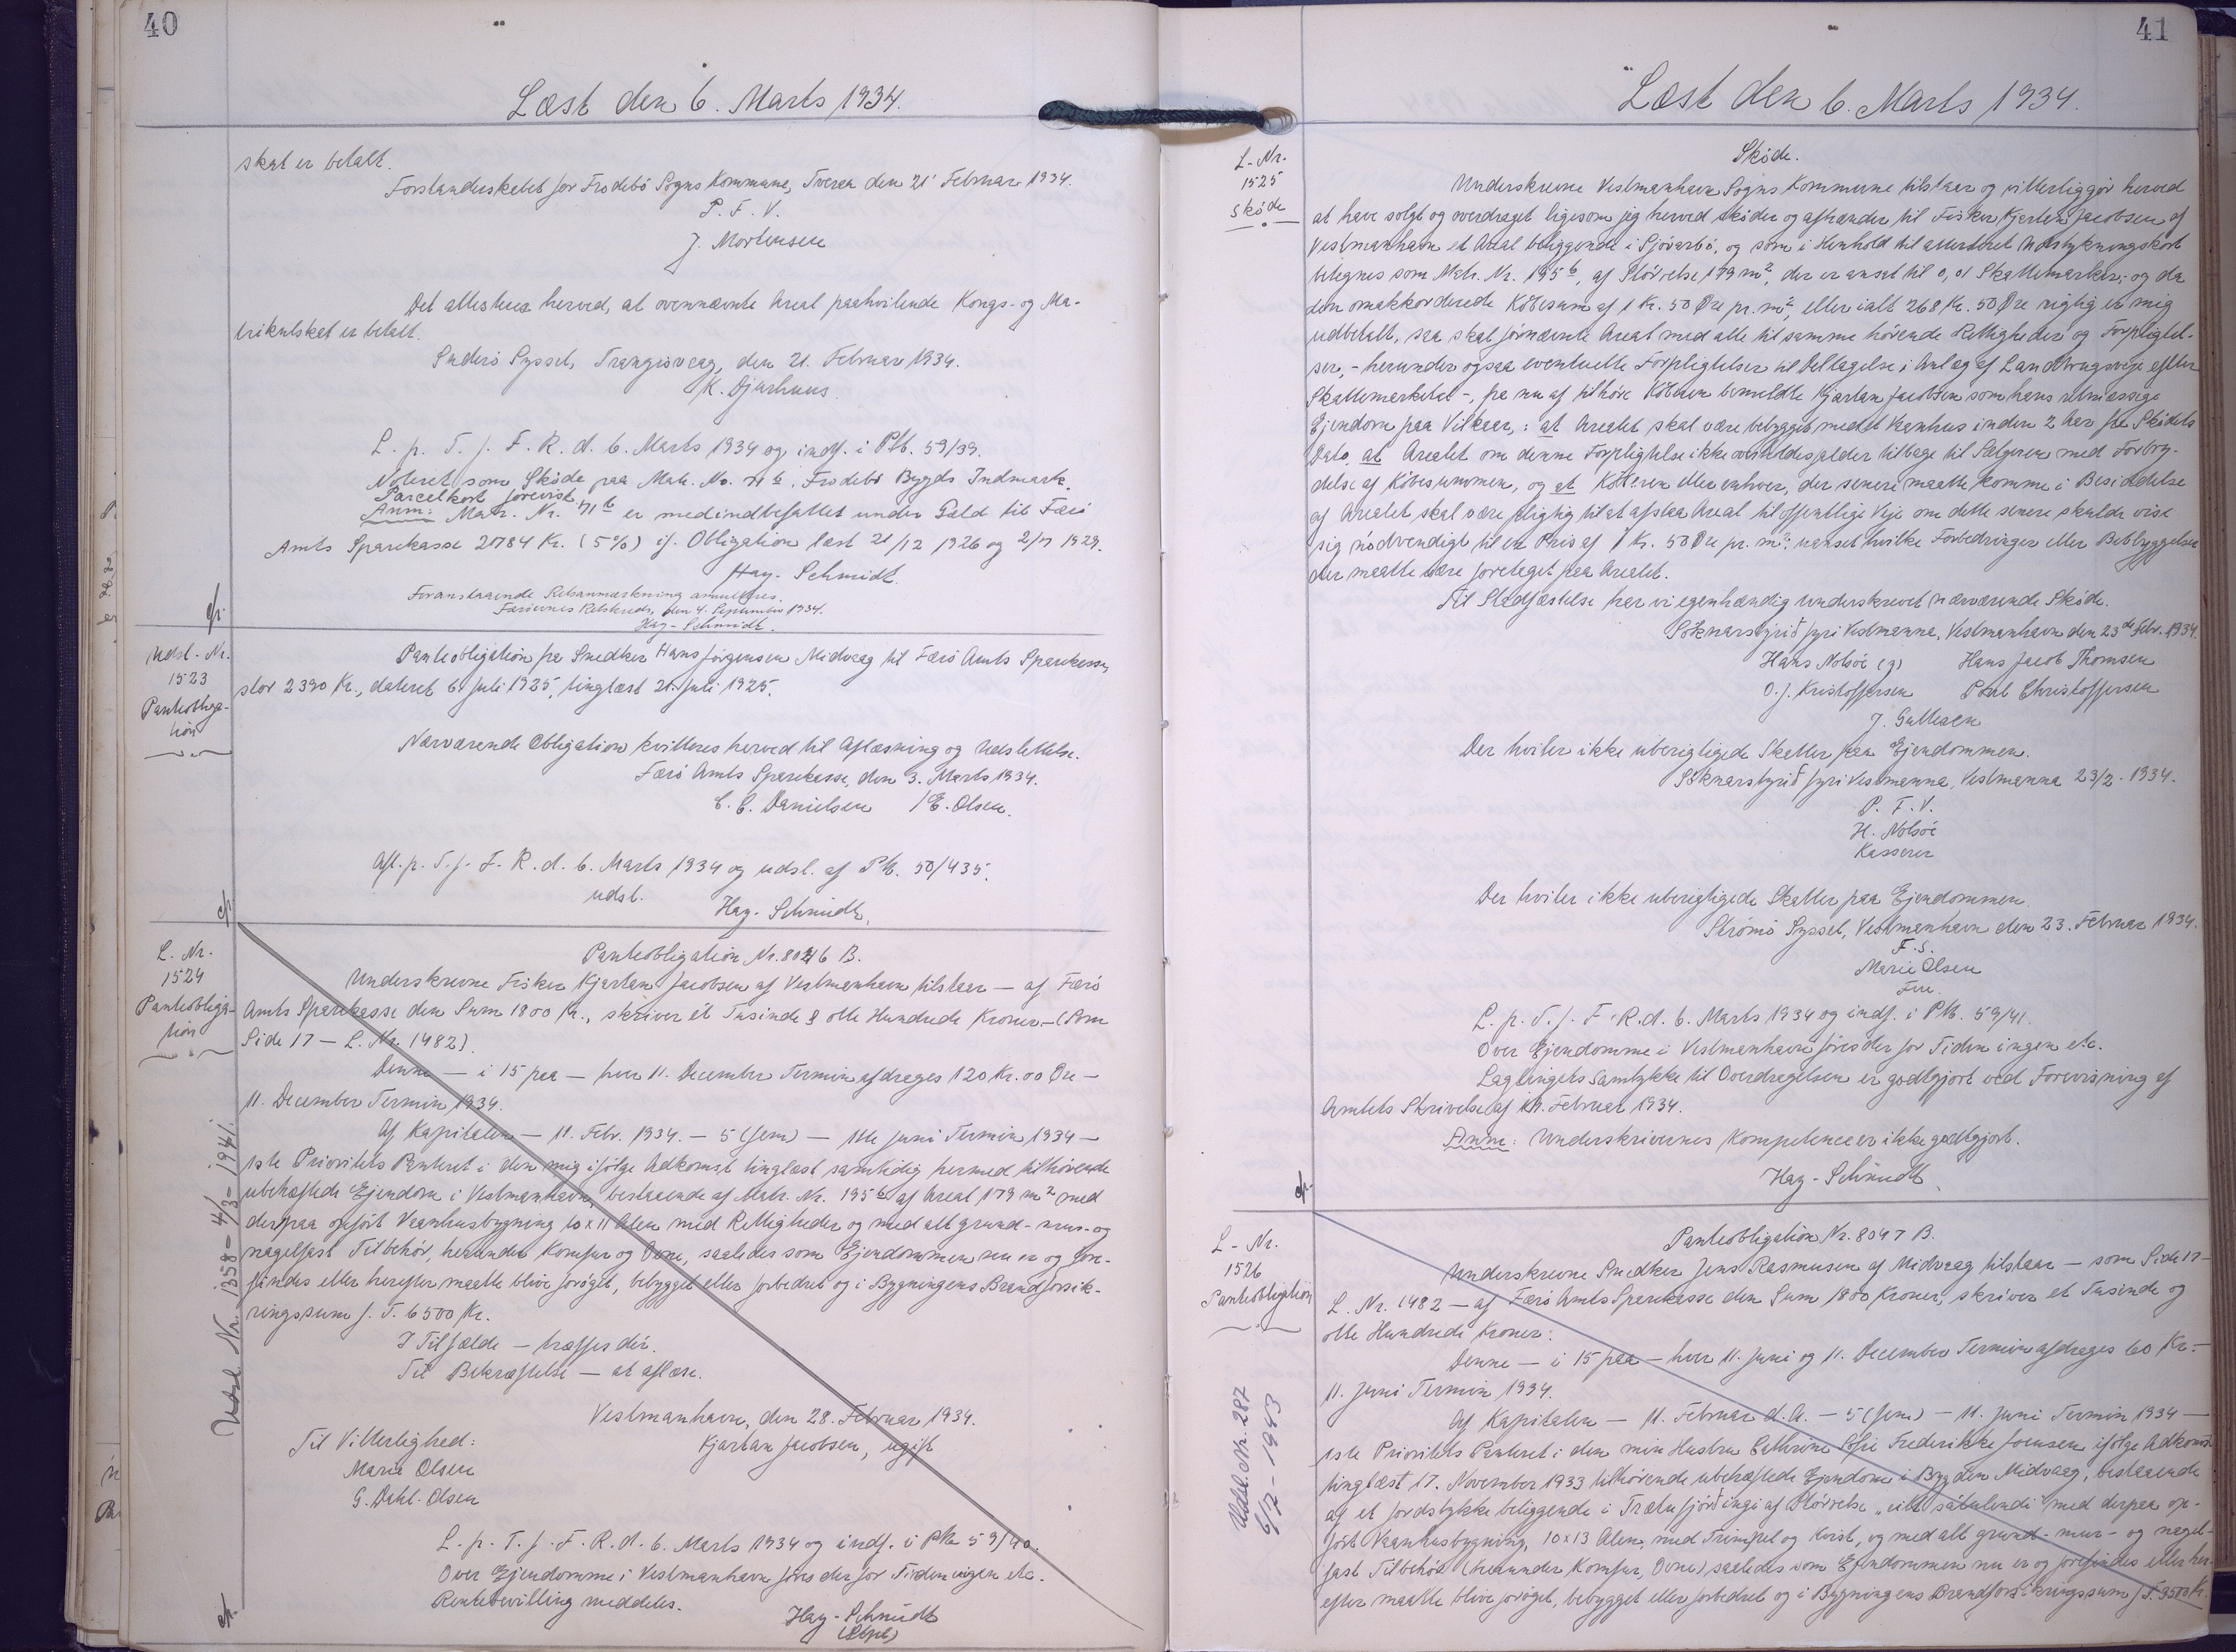 40
Læst den 6. Marts 1934.
skat er betalt.
Forstanderskabet for Frodebö Sogns Kommune, Tveraa den 21' Februar 1934.
P. F. V.
J. Mortensen
Det attesteres herved, at ovennævnte Areal paahvilende Kongs- og Ma-
trikulskat er betalt.
Suderö Syssel, Trangisvaag, den 21. Februar 1934.
K. Djurhuus.
L. p. T. f. F. R. d. 6. Marts 1934 og indf. i Ptb. 59/39.
Noteret som Sköde paa Matr. No. 71 b, Frodebö Bygds Indmark.
Parcelkort forevist.
Anm: Matr. Nr. 71 b er medindbefattet under Gæld til Færö
Amts Sparekasse 2784 Kr. (5%) if. Obligation læst 21/12 1926 og 2/7 1929.
Hay-Schmidt.
Foranstaaende Retsanmærkning annulleres.
Færöernes Retskreds, den 4. September 1934.
Hay-Schmidt.
Udsl.-Nr.
1523
Panteobliga-
tion
Panteobligation fra Snedker Hans Jörgensen Midvaag til Færö Amts Sparekasse,
stor 2390 Kr., dateret 6. Juli 1925, tinglæst 21. Juli 1925.
Nærværende Obligation kvitteres herved til Aflæsning og Udslettelse.
Færö Amts Sparekasse, den 3. Marts 1934.
C. C. Danielsen /E. Olsen.
Afl. p. T. f. F. R. d. 6. Marts 1934 og udsl. af Ptb. 50/435.
udsl.
Hay-Schmidt.
L. Nr.
1524
Panteobliga-
tion
Panteobligation Nr. 8046 B.
Underskrevne Fisker Kjartan Jacobsen af Vestmanhavn tilstaar — af Færö
Amts Sparekasse den Sum 1800 Kr., skriver ét Tusinde & otte Hundrede Kroner — (som
Side 17 — L. Nr. 1482).
Denne — i 15 paa — hver 11. December Termin afdrages 120 Kr. 00 Öre —
11. December Termin 1934.
Af Kapitalen — 11. Febr. 1934. — 5 (fem) — 11te Juni Termin 1934 —
1ste Prioritets Panteret i den mig ifölge Adkomst tinglæst samtidig hermed tilhörende
ubehæftede Ejendom i Vestmanhavn, bestaaende af Matr. Nr. 195 b af Areal 179 m² med
derpaa opfört Vaanhusbygning 10 x 11 Alen med Rettigheder og med alt grund- mur- og
nagelfast Tilbehör, herunder Komfur og Ovne, saaledes som Ejendommen nu er og fore-
findes eller herefter maatte blive foröget, bebygget eller forbedret og i Bygningens Brandforsik-
ringssum f. T. 6500 Kr.
I Tilfælde — træffes dér.
Til Bekræftelse — at aflæse.
Vestmanhavn, den 28. Februar 1934.
Til Vitterlighed:
Kjartan Jacobsen, ugift
Marie Olsen
G. Dahl-Olsen
L. p. T. f. F. R. d. 6. Marts 1934 og indf. i Ptb 59/40.
Over Ejendomme i Vestmanhavn föres der for Tiden ingen etc.
Rentebevilling meddeles.
Hay-Schmidt
Udsl Nr. 1358 - 4/3 - 1941.
41
Læst den 6. Marts 1934.
L-Nr.
1525
Sköde
Sköde.
Underskrevne Vestmanhavn Sogns Kommune tilstaar og vitterliggör herved
at have solgt og overdraget ligesom jeg herved sköder og afhænder til Fisker Kjartan Jacobsen af
Vestmanhavn et Areal beliggende i Sjövarbö, og som i Henhold til attesteret Udstykningskort
betegnes som Matr. Nr. 195 b, af Störrelse 179 m², der er ansat til 0,01 Skattemarker,- og da
den omakkorderede Köbesum af 1 Kr. 50 Öre pr. m², eller ialt 268 Kr. 50 Öre rigtig er mig
udbetalt, saa skal förnævnte Areal med alle til samme hörende Rettigheder og Forpligtel-
ser, - herunder ogsaa eventuelle Forpligtelser til Deltagelse i Anlæg af Landbrugsveje efter
Skattemarketal -, fra nu af tilhöre Köberen bemeldte Kjartan Jacobsen som hans retmæssige
Ejendom paa Vilkaar,: at Arealet skal være bebygget med et Vaanhus inden 2 Aar fra Sködets
Dato, at Arealet om denne Forpligtelse ikke overholdes falder tilbage til Sælgeren med Forbry-
delse af Köbesummen, og at Köberen eller enhver, der senere maatte komme i Besiddelse
af Arealet skal være pligtig til at afstaa Areal til offentlige Veje om dette senere skulde vise
sig nödvendigt til en Pris af 1 Kr. 50 Öre pr. m², uanset hvilke Forbedringer eller Bebyggelser
der maatte være foretaget paa Arealet.
Til Stadfæstelse har vi egenhændig underskrevet nærværende Sköde.
Sóknarstýrið fyri Vestmanna, Vestmanhavn den 23de febr. 1934.
Hans Nolsöe (g) Hans Jacob Thomsen
O. J. Kristoffersen Poul Christoffersen
J. Gullesen
Der hviler ikke uberigtigede Skatter paa Ejendommen.
Sóknarstýrið fyri Vestmanna, Vestmanna 23/2 - 1934.
P. F. V.
H. Nolsöe
Kasserer
Der hviler ikke uberigtigede Skatter paa Ejendommen.
Strömö Syssel, Vestmanhavn den 23. Februar 1934.
F. S.
Marie Olsen
Fm.
L. p. T. f. F. R. d. 6. Marts 1934 og indf. i Ptb. 59/41.
Over Ejendomme i Vestmanhavn föres der for Tiden ingen etc.
Lagtingets Samtykke til Overdragelsen er godtgjort ved Forevisning af
Amtets Skrivelse af Februar 1934.
Anm: Underskrivernes Kompetence er ikke godtgjort.
Hay-Schmidt.
L-Nr.
1526
Panteobligation
Panteobligation Nr. 8047 B.
Underskrevne Snedker Jens Rasmusen af Midvaag tilstaar — som Side 17 —
L. Nr. 1482 — af Færö Amts Sparekasse den Sum 1800 Kroner, skriver et Tusinde og
otte Hundrede Kroner:
Denne — i 15 paa — hver 11. Juni og 11. December Termin afdrages 60 Kr. —
11. Juni Termin 1934.
Af Kapitalen — 11. Februar d. A. — 5 (fem) — 11. Juni Termin 1934 —
1ste Prioritets Panteret i den min Hustru Cathrine Sofie Frederikke Joensen ifölge Adkomst
tinglæst 17. November 1933 tilhörende ubehæftede Ejendom i Bygden Midvaag, bestaaende
af et Jordstykke beliggende i af Störrelse med derpaa op-
fört Vaanhusbygning, 10 x 13 Alen, med Trimpel og Kvist, og med alt grund- mur- og nagel-
fast Tilbehör (herunder Komfur, Ovne) saaledes som Ejendommen nu er og forefindes eller her-
efter maatte blive foröget, bebygget eller forbedret og i Bygningens Brandforsikringssum f. T. 9500 Kr.
Udsl. Nr. 287
6/7 - 1943